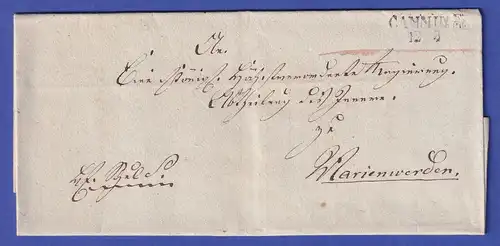 CAMMIN
12 3
An
Eine Königl. Hochverordnete Regierung.
Abtheilung des Innern.
zu
Marienwerder.